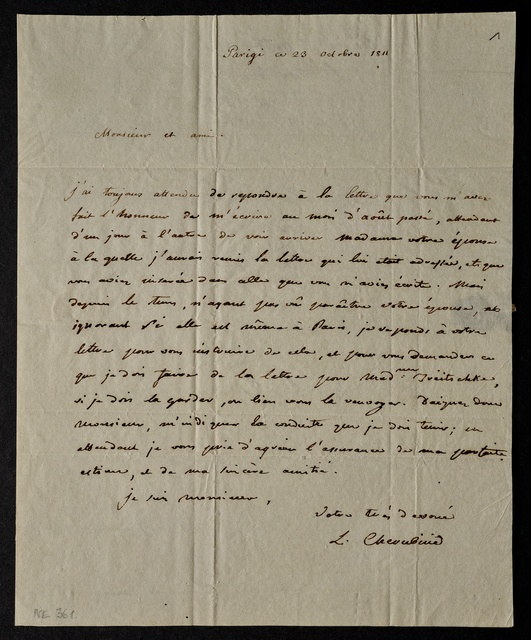 Parigi ce 23 Octobre 1811
Monsieur et ami.
j'ai toujours attendu de repondre à la lettre que vous m'avez
fait l'honneur de m'ecrire au mois d'août passé, attendant
d'un jour à l'autre de voir arriver Madame votre épouse
à la quelle j'aurais remis la lettre qui lui etait adressée, et que
vous aviez incluse dans celle que vous m'aviez écrite. Mais
depuis le tems, n'ayant pas vû paraître votre épouse, et
ignorant si elle est même à Paris, je reponds à votre
lettre pour vous instruire de cela, et pour vous demander ce
que je dois faire de la lettre pour Mad.me Treitschke,
si je dois la garder, ou bien vous la renvoyer. Daignez donc
Monsieur, m'indiquer la conduite que je dois tenir; en
attendant je vous prie d'agréer l'assurance de ma parfaite
estime, et de ma sincère amitié.
je suis Monsieur,
Votre très devoué
L. Cherubini